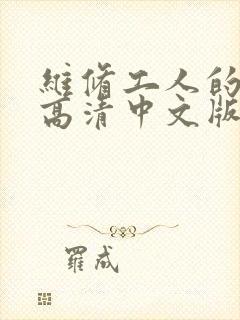 維脩工人的
高清中文版
羅成